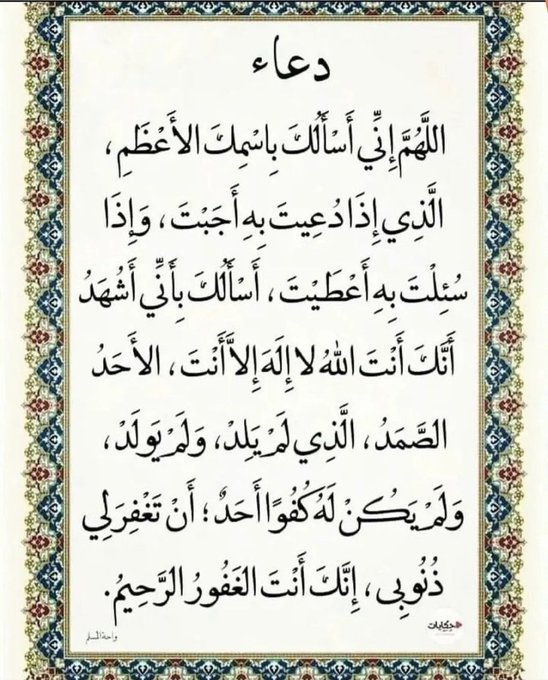 دعاء
اللَّهُمَّ إِنِّي أَسْأَلُكَ بِاسْمِكَ الأَعْظَمِ،
الَّذِي إِذَا دُعِيتَ بِهِ أَجَبْتَ، وَإِذَا
سُئِلْتَ بِهِ أَعْطَيْتَ، أَسْأَلُكَ بِأَنِّي أَشْهَدُ
أَنَّكَ أَنْتَ اللهُ لا إِلَهَ إِلاَّ أَنْتَ، الأَحَدُ
الصَّمَدُ، الَّذِي لَمْ يَلِدْ، وَلَمْ يُولَدْ،
وَلَمْ يَكُنْ لَهُ كُفُوًا أَحَدٌ؛ أَنْ تَغْفِرَ لِي
ذُنُوبِى، إِنَّكَ أَنْتَ الغَفُورُ الرَّحِيمُ.
حكايات
واحة المسلم